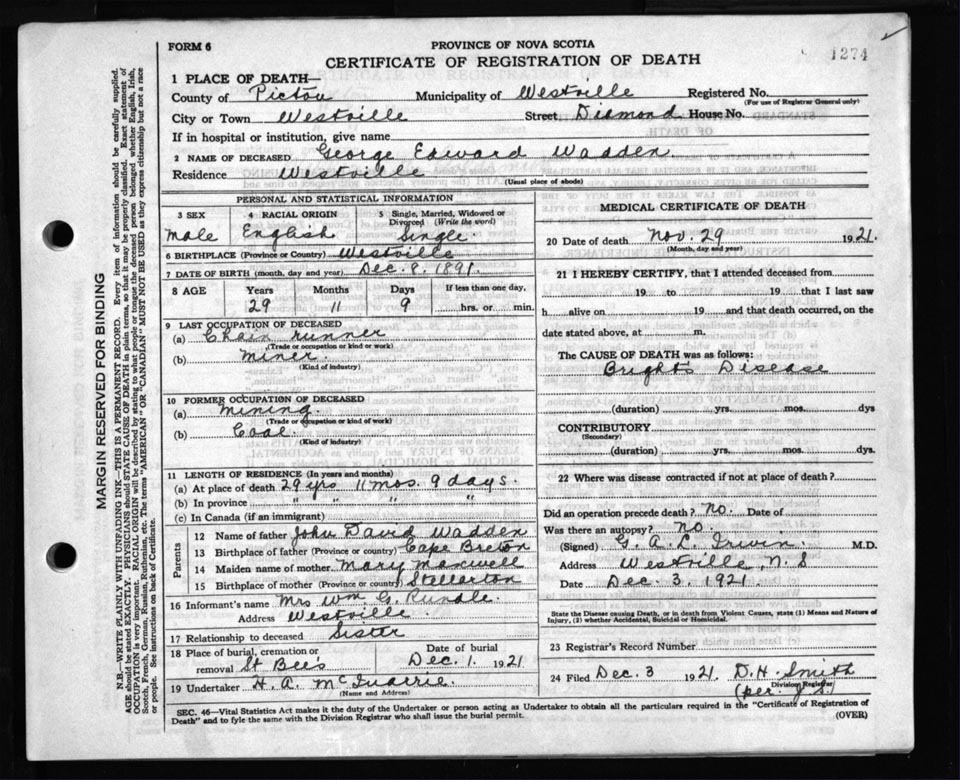 1274
FORM 6
PROVINCE OF NOVA SCOTIA
CERTIFICATE OF REGISTRATION OF DEATH
1 PLACE OF DEATH—
County of Pictou Municipality of Westville Registered No.
(For use of Registrar General only)
City or Town Westville Street, Diamond House No.
If in hospital or institution, give name
2 NAME OF DECEASED George Edward Wadden
Residence Westville
(Usual place of abode)
PERSONAL AND STATISTICAL INFORMATION
3 SEX 4 RACIAL ORIGIN 5 Single, Married, Widowed or
Divorced (Write the word)
Male English Single
6 BIRTHPLACE (Province or Country) Westville
7 DATE OF BIRTH (month, day, year) Dec. 8. 1891.
8 AGE Years Months Days If less than one day,
29 11 9 hrs. or min.
9 LAST OCCUPATION OF DECEASED
(a) Chain runner
(Trade or occupation or kind or work)
(b) Miner.
(Kind of industry)
10 FORMER OCCUPATION OF DECEASED
(a) Mining.
(Trade or occupation or kind of work)
(b) Coal.
(Kind of industry)
11 LENGTH OF RESIDENCE (In years and months)
(a) At place of death 29 yrs 11 mos. 9 days.
(b) In province " " "
(c) In Canada (if an immigrant)
Parents
12 Name of father John David Wadden
13 Birthplace of father (Province or country) Cape Breton
14 Maiden name of mother Mary Maxwell
15 Birthplace of mother (Province or country) Stellarton
16 Informant's name Mrs Wm. G. Rundle.
Address Westville
17 Relationship to deceased Sister
18 Place of burial, cremation or
removal St Bee's
Date of burial
Dec. 1. 1921
19 Undertaker H. A. McQuarrie.
(Name and Address)
MEDICAL CERTIFICATE OF DEATH
20 Date of death Nov. 29 1921.
(Month, day and year)
21 I HEREBY CERTIFY, that I attended deceased from
19 to 19 that I last saw
h alive on 19 and that death occurred, on the
date stated above, at m.
The CAUSE OF DEATH was as follows:
Brights Disease
(duration) yrs. mos. dys
CONTRIBUTORY
(Secondary)
(duration) yrs. mos. dys.
22 Where was disease contracted if not at place of death?
Did an operation precede death? No. Date of
Was there an autopsy? No.
(Signed) G. A. L. Irwin. M.D.
Address Westville, N. S
Date Dec. 3. 1921.
State the Disease causing Death, or in death from Violent Causes, state (1) Means and Nature of
Injury, (2) whether Accidental, Suicidal or Homicidal.
23 Registrar's Record Number
24 Filed Dec. 3 1921. D. H. Smith
Division Registrar
(per. J. S.
SEC. 46—Vital Statistics Act makes it the duty of the Undertaker or person acting as Undertaker to obtain all the particulars required in the "Certificate of Registration of
Death" and to fyle the same with the Division Registrar who shall issue the burial permit.
(OVER)
MARGIN RESERVED FOR BINDING
N.B.—WRITE PLAINLY WITH UNFADING INK—THIS IS A PERMANENT RECORD. Every item of information should be carefully supplied.
AGE should be stated EXACTLY. PHYSICIANS should STATE CAUSE OF DEATH in plain terms, so that it may be properly classified. Exact statement of
OCCUPATION is very important. RACIAL ORIGIN will be described by stating to what people or tongue the deceased person belonged whether English, Irish,
Scotch, French, German, Russian, Ruthenian, etc. The terms "AMERICAN" OR "CANADIAN" MUST NOT BE USED as they express citizenship but not a race
or people. See instructions on back of Certificate.